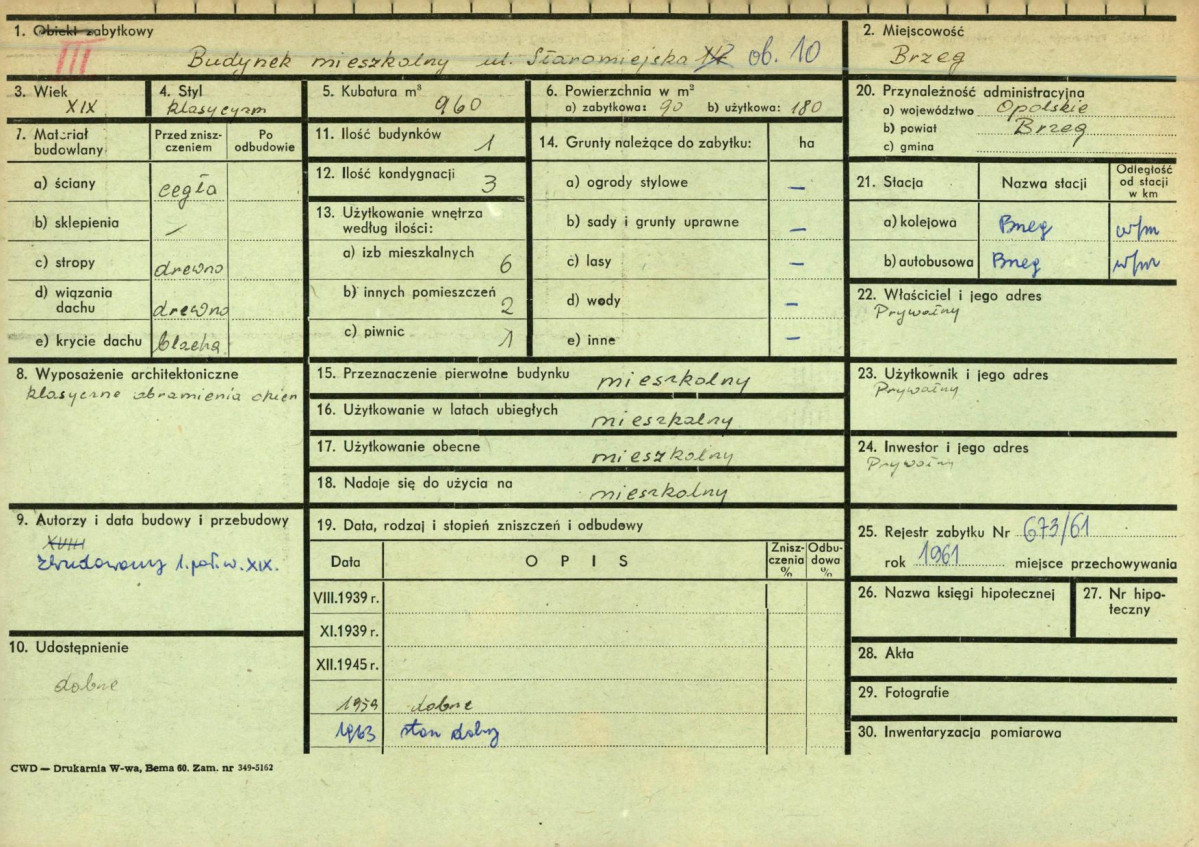 1. Obiekt zabytkowy
III
Budynek mieszkalny ul. Staromiejska 17 ob. 10
2. Miejscowość
Brzeg
3. Wiek
XIX
4. Styl
klasycyzm
5. Kubatura m³
960
6. Powierzchnia w m²
a) zabytkowa: 90 b) użytkowa: 180
20. Przynależność administracyjna
a) województwo Opolskie
b) powiat Brzeg
c) gmina
7. Materiał budowlany
Przed zniszczeniem
Po odbudowie
a) ściany cegła
b) sklepienia –
c) stropy drewno
d) wiązania dachu drewno
e) krycie dachu blacha
11. Ilość budynków
1
12. Ilość kondygnacji
3
13. Użytkowanie wnętrza
według ilości:
a) izb mieszkalnych 6
b) innych pomieszczeń 2
c) piwnic 1
14. Grunty należące do zabytku: ha
a) ogrody stylowe –
b) sady i grunty uprawne –
c) lasy –
d) wody –
e) inne –
21. Stacja Nazwa stacji Odległość od stacji w km
a) kolejowa Brzeg w/m
b) autobusowa Brzeg w/m
22. Właściciel i jego adres
Prywatny
8. Wyposażenie architektoniczne
klasyczne obramienia okien
15. Przeznaczenie pierwotne budynku mieszkalny
16. Użytkowanie w latach ubiegłych mieszkalny
17. Użytkowanie obecne mieszkalny
18. Nadaje się do użycia na mieszkalny
23. Użytkownik i jego adres
Prywatny
24. Inwestor i jego adres
Prywatny
9. Autorzy i data budowy i przebudowy
XVIII
zbudowany 1. poł. w. XIX.
10. Udostępnienie
dobre
19. Data, rodzaj i stopień zniszczeń i odbudowy
Data OPIS Zniszczenia % Odbudowa %
VIII.1939 r.
XI.1939 r.
XII.1945 r.
1959 dobre
1963 stan dobry
25. Rejestr zabytku Nr 673/61
rok 1961 miejsce przechowywania
26. Nazwa księgi hipotecznej
27. Nr hipoteczny
28. Akta
29. Fotografie
30. Inwentaryzacja pomiarowa
CWD — Drukarnia W-wa, Bema 60. Zam. nr 349-5162